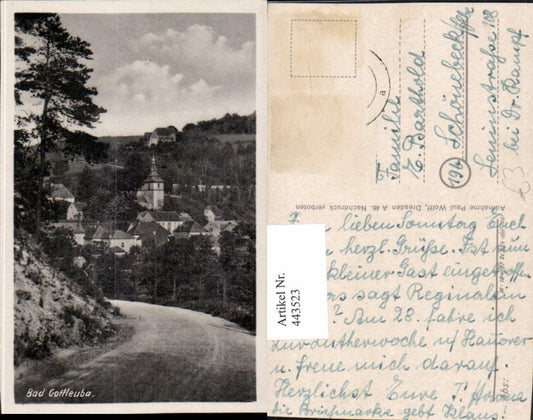 Bad Gottleuba.
Artikel Nr.
443523
Familie
E. Barthold
19b
Schönebeck/Elbe
Leninstraße 18
bei Dr. Rampf
£3
Aufnahme Paul Wolff, Dresden A 46. Nachdruck verboten
lieben Sonntag Euch
herzl. Grüße. Ist nun
kleiner Gast eingetroffen
sagt Reginalein
? Am 28. fahre ich
zur Ostherwoche n/ Hannover
u. freue mich darauf.
Herzlichst Eure T.
die Briefmarke gebt Klaus.